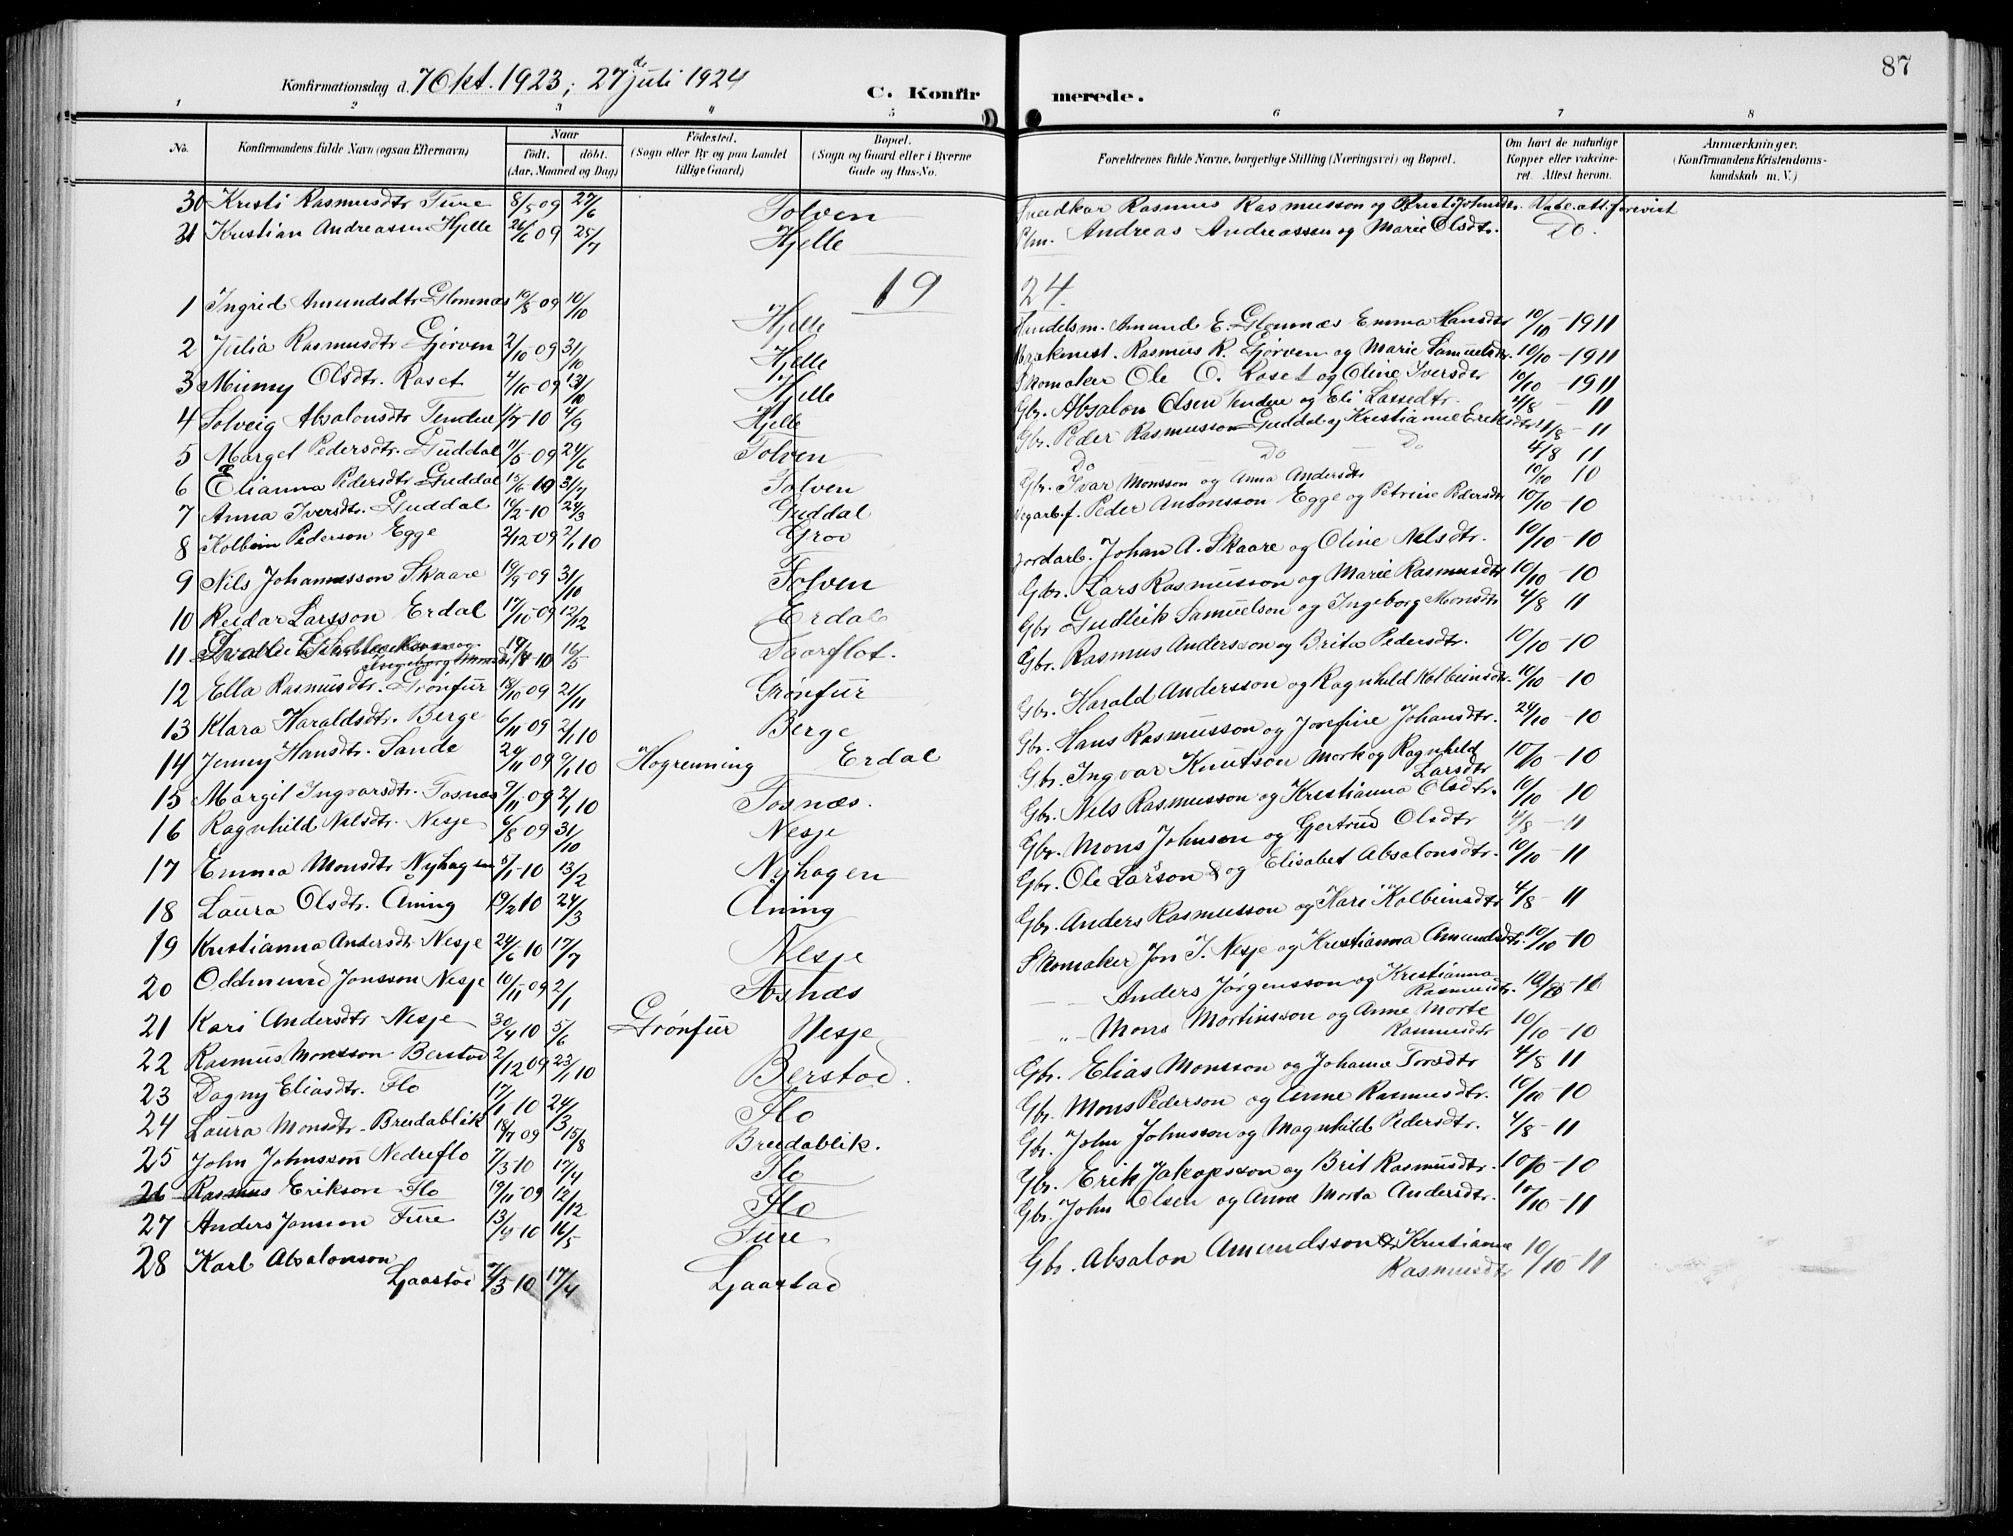 87
Konfirmationsdag d. 7 Okt. 1923; 27de juli 1924
C. Konfirmerede.
1 2 3 4 5 6 7 8
No. Konfirmandens fulde Navn (ogsaa Efternavn) Naar født, døbt. (Aar, Maaned og Dag) Fødested. (Sogn eller By og paa Landet tillige Gaard) Bopæl. (Sogn og Gaard eller i Byerne Gade og Hus-No. Forældrenes fulde Navne, borgerlige Stilling (Næringsvei) og Bopæl. Om havt de naturlige Kopper eller vakcineret. Attest herom. Anmærkninger. (Konfirmandens Kristendomskundskab m. V.)
30 Kristi Rasmusdtr Fure 8/5 09 27/6 Tolven Rasmus Rasmusson og Kristi Johnsdtr.
31 Kristian Andreassen Hjelle 26/6 09 25/7 Hjelle Andreas Andreassen og Marie Olsdtr. Do.
19 24.
1 Ingrid Amundsdtr Glomnæs 19/8 09 10/10 Hjelle Handelsm. Amund E. Glomnæs Emma Hansdtr 10/10 - 1911
2 Julia Rasmusdtr Gjørven 2/10 09 31/10 Hjelle Rasmus R. Gjørven og Marie Samuelsdtr. 10/10 - 1911
3 Mimmy Olsdtr. Raset 4/10 09 31/10 Hjelle Skomaker Ole O. Raset og Oline Iversdtr 10/10 - 1911
4 Solveig Absalonsdtr Tenden 1/7 - 10 4/9 Hjelle Gbr. Absalon Olsen Tenden og Eli Larsdtr. 4/8 - 11
5 Marget Pedersdtr. Guddal 11/5 - 09 24/6 Tolven Gbr. Peder Rasmusson Guddal og Kristianne Eriksdtr 4/8 - 11
6 Elianna Pedersdtr Guddal 15/6 - 10 31/7 Tolven Do - Do - Do 4/8 11
7 Anna Iversdtr. Guddal 16/2 - 10 24/3 Guddal Gbr. Ivar Monsson og Anna Andersdtr 10/10 10
8 Kolbein Pederson Egge 2/12 09 2/1 10 Grov Vegarb.f. Peder Antonsson Egge og Petrine Pedersdtr 10/10 - 10
9 Nils Johannesson Skaare 19/9 - 09 31/10 Tolven Jordarb. Johan A. Skaare og Oline Nelsdtr. 10/10 - 10
10 Reidar Larsson Erdal 17/10 - 09 12/12 Erdal Gbr. Lars Rasmusson og Marie Rasmusdtr 10/10 - 10
11 Ingeborg Monsdtr 10 16/5 Taarflot. Gbr Gudleik Samuelson og Ingeborg Monsdtr 4/8 11
12 Ella Rasmusdtr. Grønfur 18/10 09 21/11 Grønfur Gbr. Rasmus Andersson og Brita Pedersdtr. 10/10 - 10
13 Klara Haraldsdtr. Berge 6/11 09 2/1 10 Berge Gbr. Harald Andersson og Ragnhild Kolbeinsdtr. 10/10 - 10
14 Jenny Hansdtr. Sande 24/11 09 9/1 10 Høgrenning Erdal Gbr. Hans Rasmusson og Josefine Johansdtr. 24/10 - 10
15 Margit Ingvarsdtr. Fosnæs 9/11 - 09 2/1 10 Fosnæs. Gbr. Ingvar Knutson Mork og Ragnhild Larsdtr 10/10 - 10
16 Ragnhild Nelsdtr. Nesje 6/8 09 31/10 Nesje Gbr. Nels Rasmusson og Kristianna Olsdtr. 10/10 - 10
17 Emma Monsdtr Nyhagen 5/1 - 10 13/2 Nyhagen Gbr. Mons Johnson og Gertrud Olsdtr 4/8 - 11
18 Laura Olsdtr. Aning 19/2 10 24/3 Aning Gbr. Ole Larson og Elisabet Absalonsdtr. 10/10 - 11
19 Kristianna Andersdtr Nesje 24/6 - 10 17/7 Nesje Gbr. Anders Rasmusson og Kari Kolbeinsdtr 4/8 - 11
20 Oddmund Jonsson Nesje 10/11 - 09 2/1 Fosnæs Skomaker Jon J. Nesje og Kristianna Amundsdtr. 10/10 - 10
21 Kari Andersdtr Nesje 30/4 10 5/6 Grønfur Nesje - - Anders Jørgensson og Kristianna Rasmusdtr.
22 Rasmus Monsson Berstad 2/12 09 23/1 10 Berstad. - „ - Mons Martinsson og Anne Marte Rasmusdtr 10/10 - 10
23 Dagny Eliasdtr. Flo 17/1 10 24/2 Flo Gbr. Elias Monsson og Johanne Torsdtr 4/8 11
24 Laura Monsdtr. Breidablik 18/7 09 15/8 Breidablik. Gbr. Mons Pederson og Anne Rasmusdtr. 10/10 - 10
25 John Johnsson Nedreflo 7/3 10 17/4 Flo Gbr. John Johnsson og Magnhild Pedersdtr. 4/8 - 11
26 Rasmus Erikson Flo 19/11 - 09 12/12 Flo Gbr. Erik Jakopsson og Brit Rasmusdtr. 10/10 - 10
27 Anders Jonson Fure 13/4 - 10 16/5 Fure Gbr. John Olsen og Anne Marta Andersdtr. 10/10 - 11
28 Karl Absalonson Gaastad 7/3 - 10 17/4 Gaastad Gbr. Absalon Amundsson & Kristianne Rasmusdtr 10/10 - 11